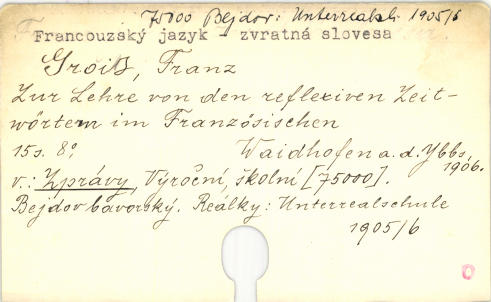 75000 Bejdov: Unterrealsch. 1905/6
Francouzský jazyk - zvratná slovesa
Groiß, Franz
Zur Lehre von den reflexiven Zeit-
wörtern im Französischen
15 s. 8°, Waidhofen a. d. Ybbs,
1906.
v.: Zprávy, Výroční, školní [75000].
Bejdov bavorský. Reálky: Unterrealschule
1905/6